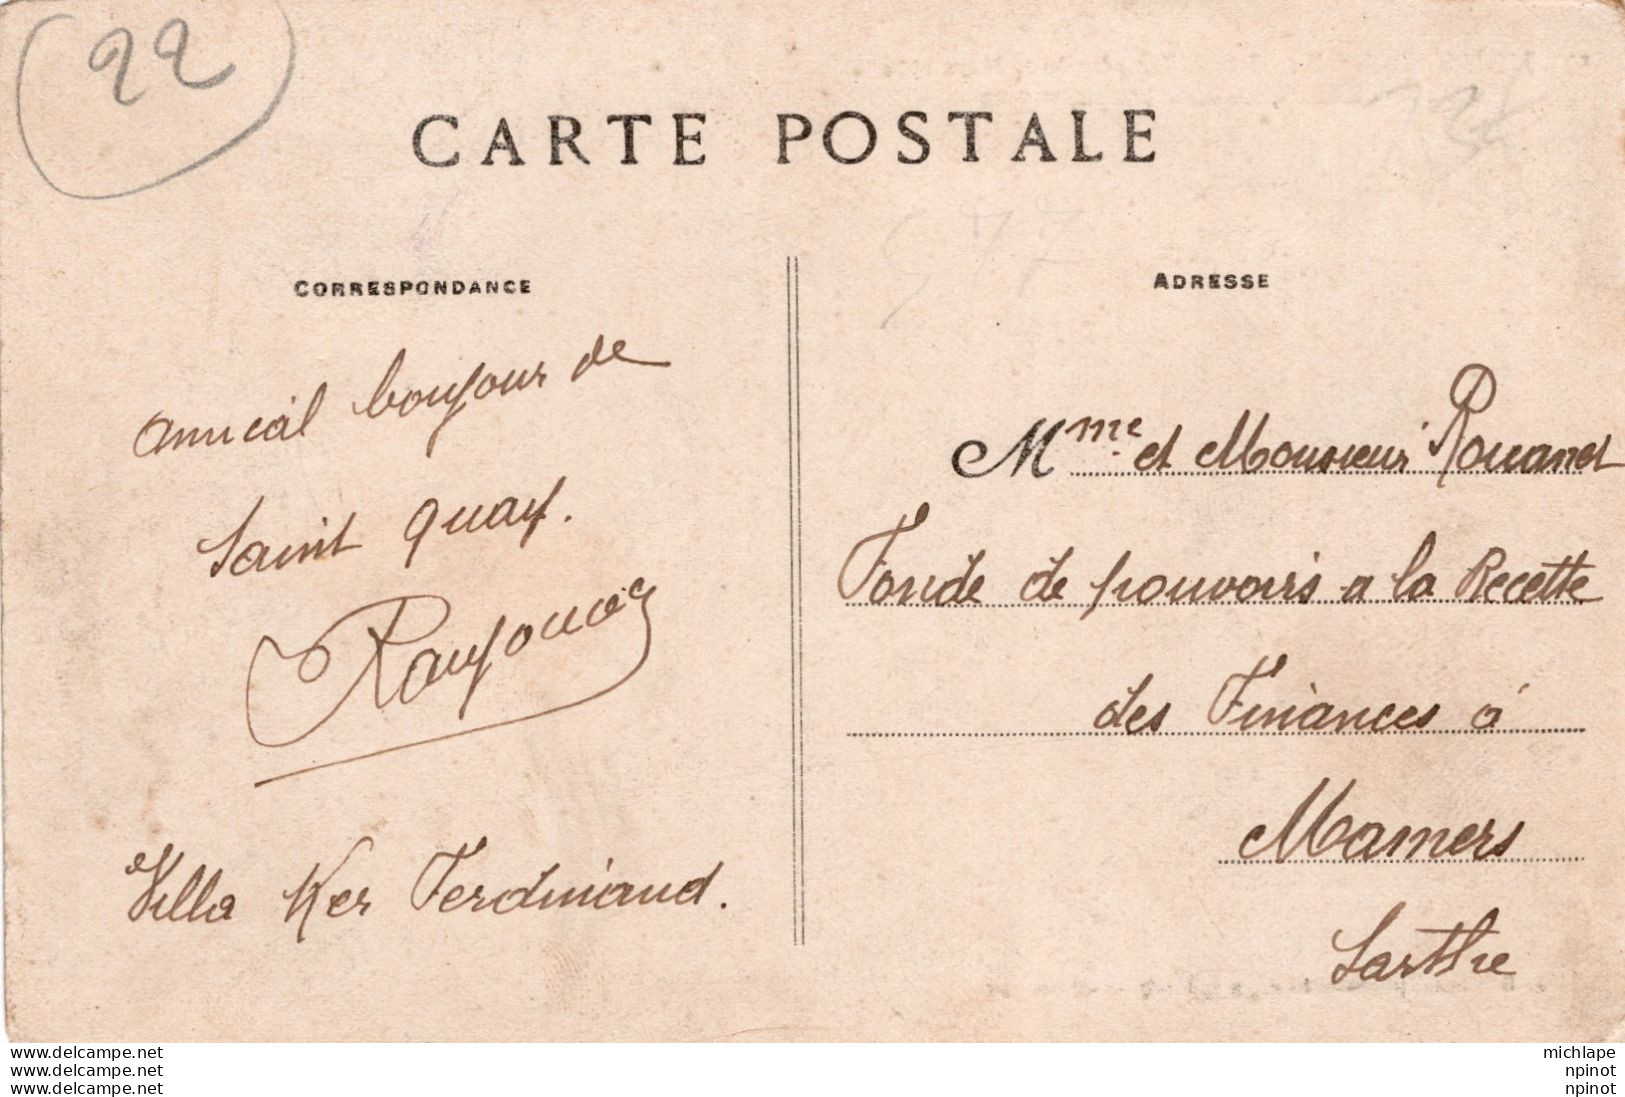 22
CARTE POSTALE
CORRESPONDANCE
Amical bonjour de
Saint Quay.
Villa Ker Ferdinand.
ADRESSE
Mme et Monsieur Rouanet
Fondé de pouvoirs a la Recette
des Finances à
Mamers
Sarthe
www.delcampe.net
www.delcampe.net
www.delcampe.net
michlape
npinot
npinot